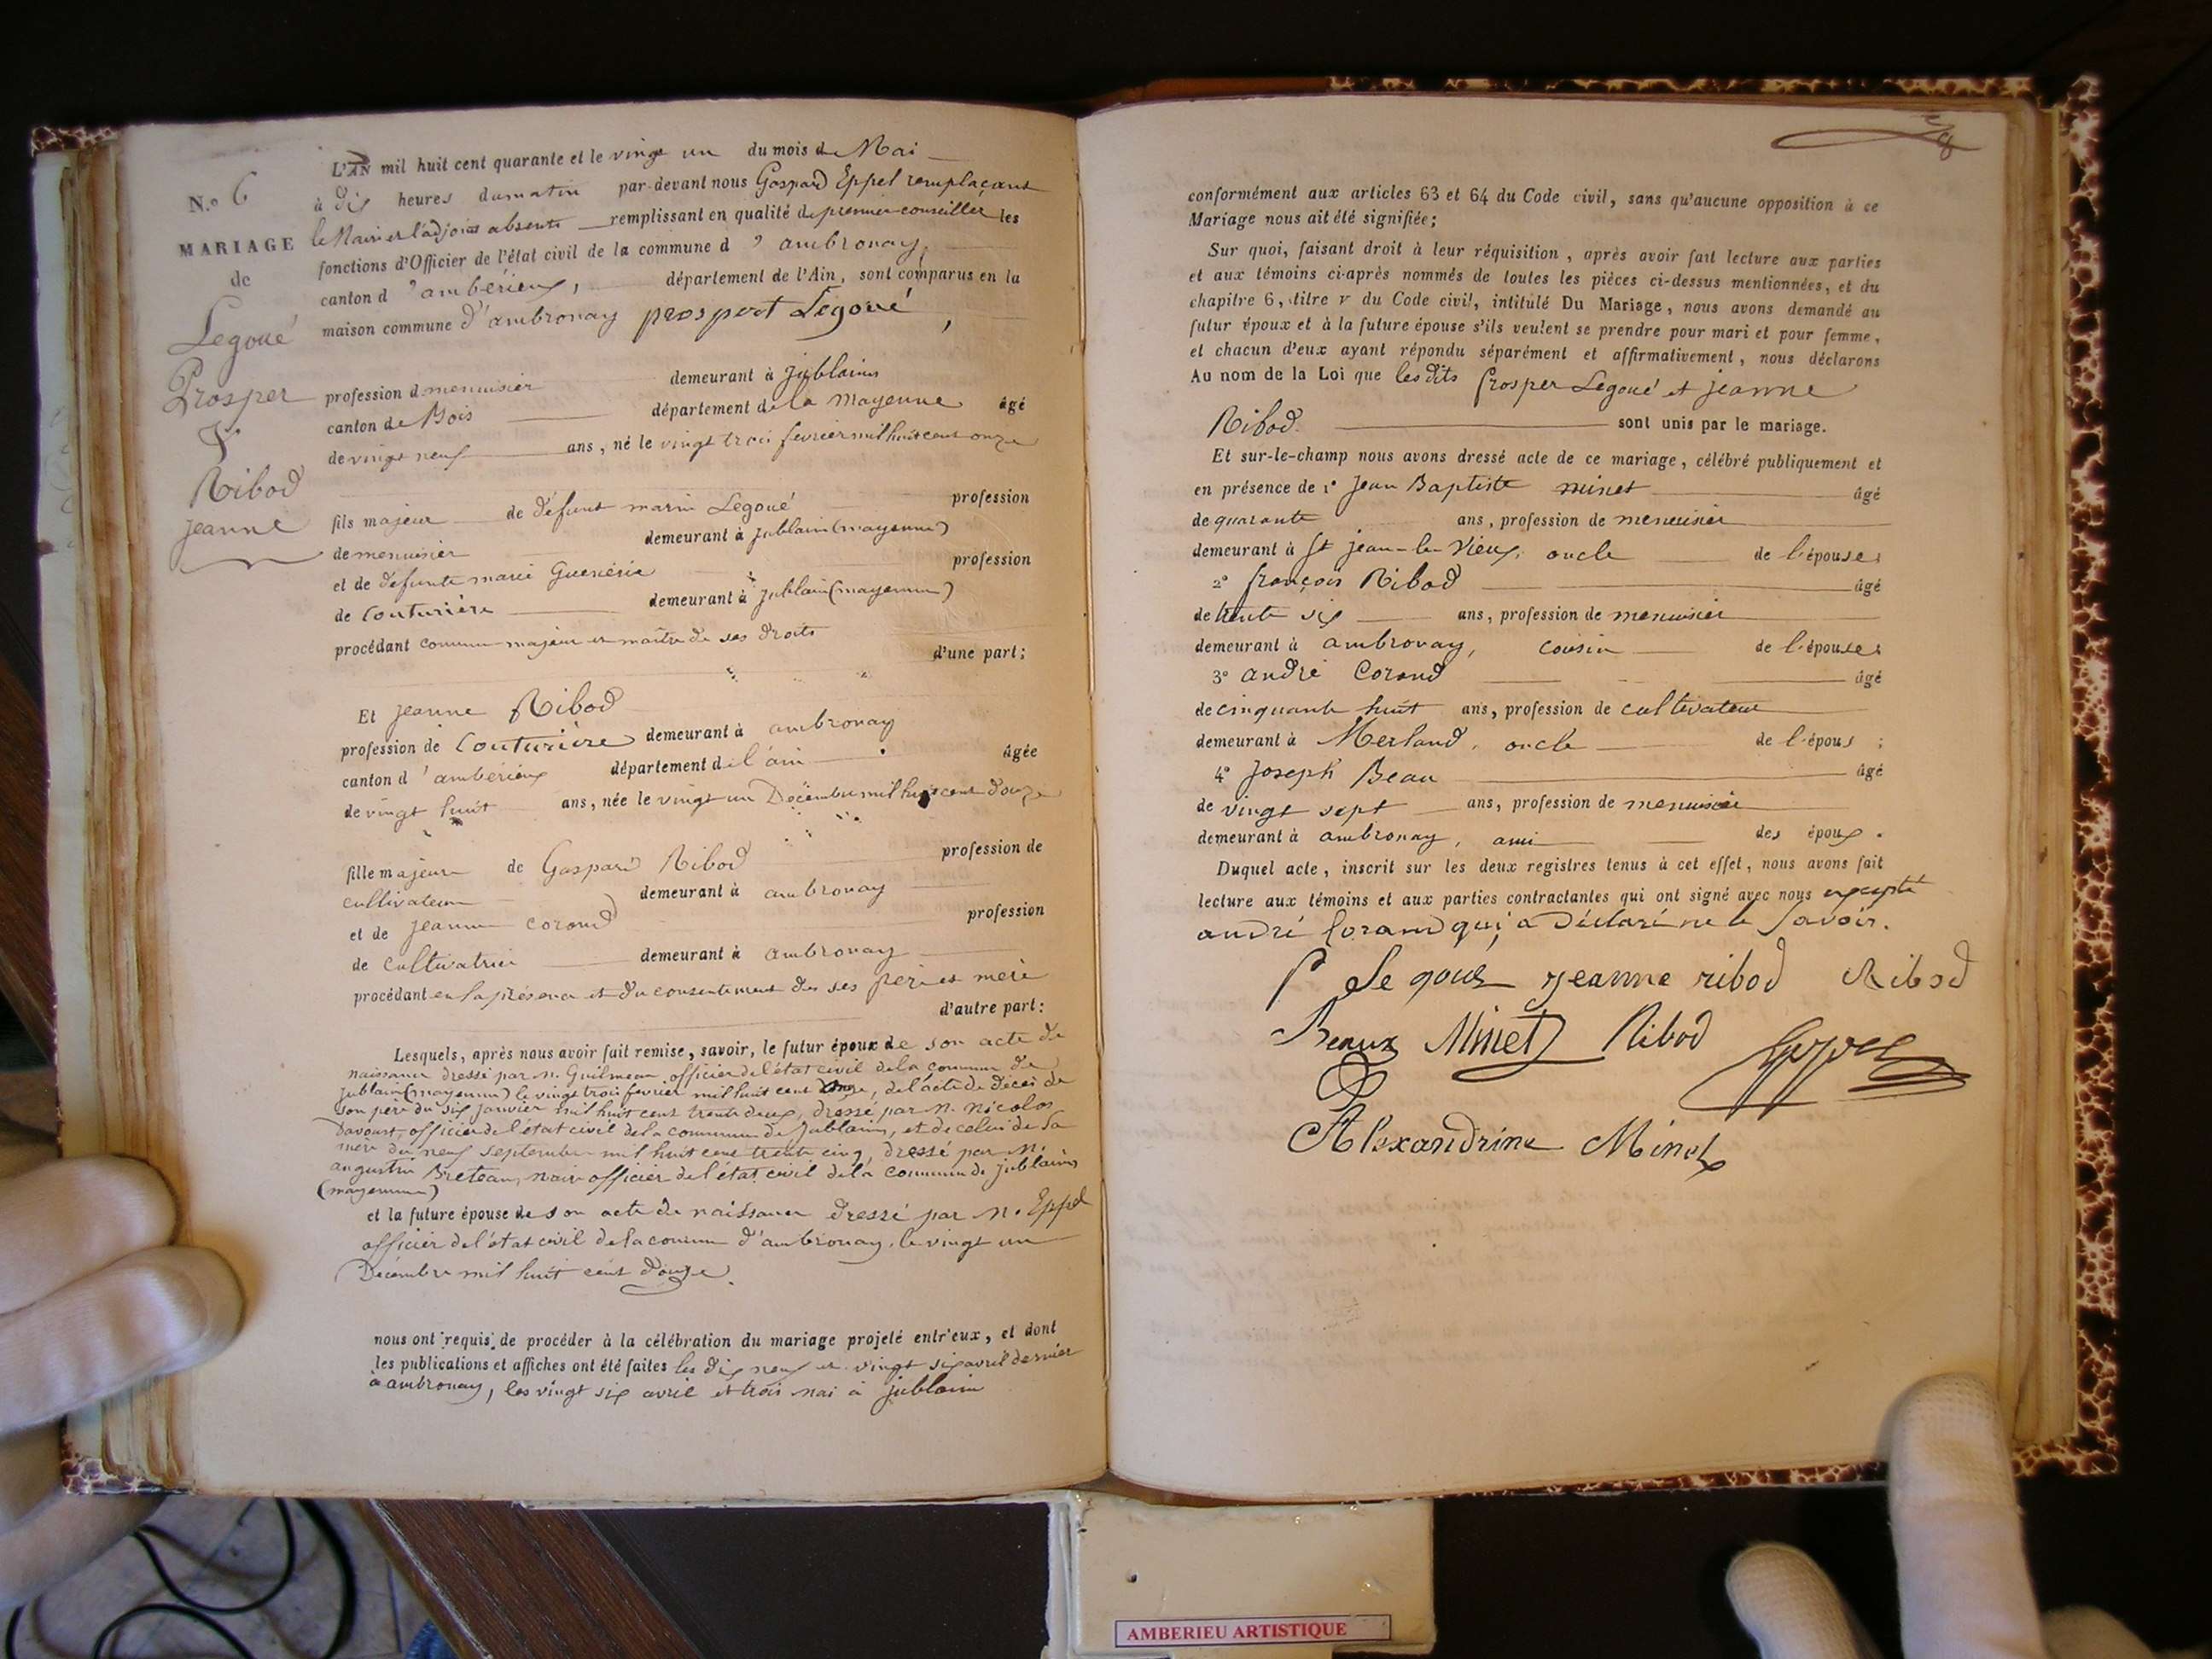 N.o 6
MARIAGE
de
Legoué
Prosper
&
Ribod
jeanne
L'AN mil huit cent quarante et le vingt un du mois de Mai
à dix heures du matin par-devant nous Gaspard Eppel remplaçant
le Maire et l'adjoint absents remplissant en qualité de premier conseiller les
fonctions d'Officier de l'état civil de la commune d'ambronay,
canton d'ambérieux, département de l'Ain, sont comparus en la
maison commune d'ambronay prospert Legoué,
profession de menuisier demeurant à Jublains
canton de Bois département de la Mayenne âgé
de vingt neuf ans, né le vingt trois fevrier mil huit cent onze
fils majeur de défunt marin Legoué profession
de menuisier demeurant à Jublain (mayenne)
et de défunte marie profession
de Couturière demeurant à Jublain (mayenne)
procédant comme majeur et maître de ses droits
d'une part;
Et jeanne Ribod
profession de Couturière demeurant à ambronay
canton d'ambérieux département de l'ain âgée
de vingt huit ans, née le vingt un Décembre mil huit cent douze
fille majeure de Gaspard Ribod profession de
cultivateur demeurant à ambronay
et de jeanne corand profession
de cultivatrice demeurant à ambronay
procédant en la présence et du consentement de ses père et mere
d'autre part:
Lesquels, après nous avoir fait remise, savoir, le futur époux de son acte de
naissance dressé par m. Guilmeau officier de l'état civil de la commune de
Jublain (mayenne) le vingt trois fevrier mil huit cent onze, de l'acte de décès de
son père du six janvier mil huit cent trente deux, dressé par m. nicolas
Davoust, officier de l'état civil de la commune de Jublains, et de celui de sa
mère du neuf septembre mil huit cent trente cinq, dressé par m.
augustin Breteau, maire officier de l'état civil de la commune de jublains
(mayenne)
et la future épouse de son acte de naissance dressé par m. Eppel
officier de l'état civil de la commune d'ambronay, le vingt un
Décembre mil huit cent douze.
nous ont requis de procéder à la célébration du mariage projeté entr'eux, et dont
les publications et affiches ont été faites les dix neuf et vingt six avril dernier
à ambronay, les vingt six avril et trois mai à jublain
conformément aux articles 63 et 64 du Code civil, sans qu'aucune opposition à ce
Mariage nous ait été signifiée;
Sur quoi, faisant droit à leur réquisition, après avoir fait lecture aux parties
et aux témoins ci-après nommés de toutes les pièces ci-dessus mentionnées, et du
chapitre 6, titre v du Code civil, intitulé Du Mariage, nous avons demandé au
futur époux et à la future épouse s'ils veulent se prendre pour mari et pour femme,
et chacun d'eux ayant répondu séparément et affirmativement, nous déclarons
Au nom de la Loi que les dits Prosper Legoué et jeanne
Ribod. sont unis par le mariage.
Et sur-le-champ nous avons dressé acte de ce mariage, célébré publiquement et
en présence de 1° Jean Baptiste minet âgé
de quarante ans, profession de menuisier
demeurant à St jean-le-Vieux, oncle de l'épouse;
2° françois Ribod âgé
de trente six ans, profession de menuisier
demeurant à ambronay, cousin de l'épouse;
3° andré Corand âgé
de cinquante huit ans, profession de cultivateur
demeurant à Merland, oncle de l'épous;
4° Joseph Beau âgé
de vingt sept ans, profession de menuisier
demeurant à ambronay, ami des époux.
Duquel acte, inscrit sur les deux registres tenus à cet effet, nous avons fait
lecture aux témoins et aux parties contractantes qui ont signé avec nous excepté
andré Corand qui a Déclaré ne le savoir.
P Legoué jeanne ribod Ribod
Beaux Minet Ribod Eppel
Alexandrine Minet
AMBERIEU ARTISTIQUE